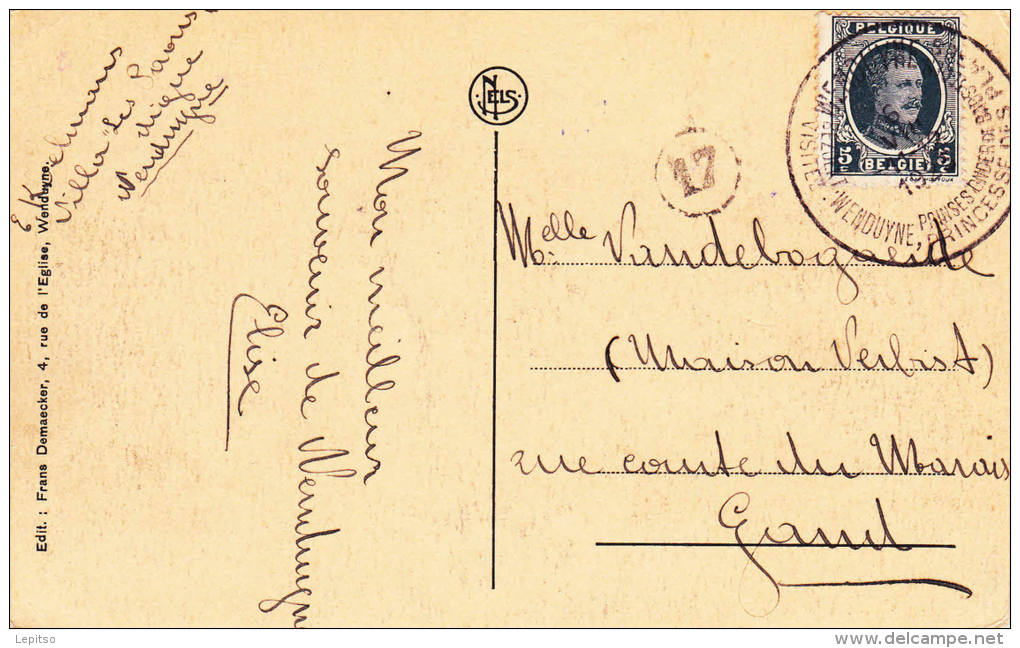 E
Villa "Les
digue
Wenduyne
Mon meilleur
souvenir de Wenduyne
Elise
Edit. : Frans Demaecker, 4, rue de l'Eglise, Wenduyne.
NELS
17
BELGIQUE
5 c 5 c
BELGIE
VISITEZ
WENDUYNE, PRINCESSE DES
Melle Vandebogaerde
(Maison Verbist)
rue courte du Marais
Gand
Lepitso
delcampe.net